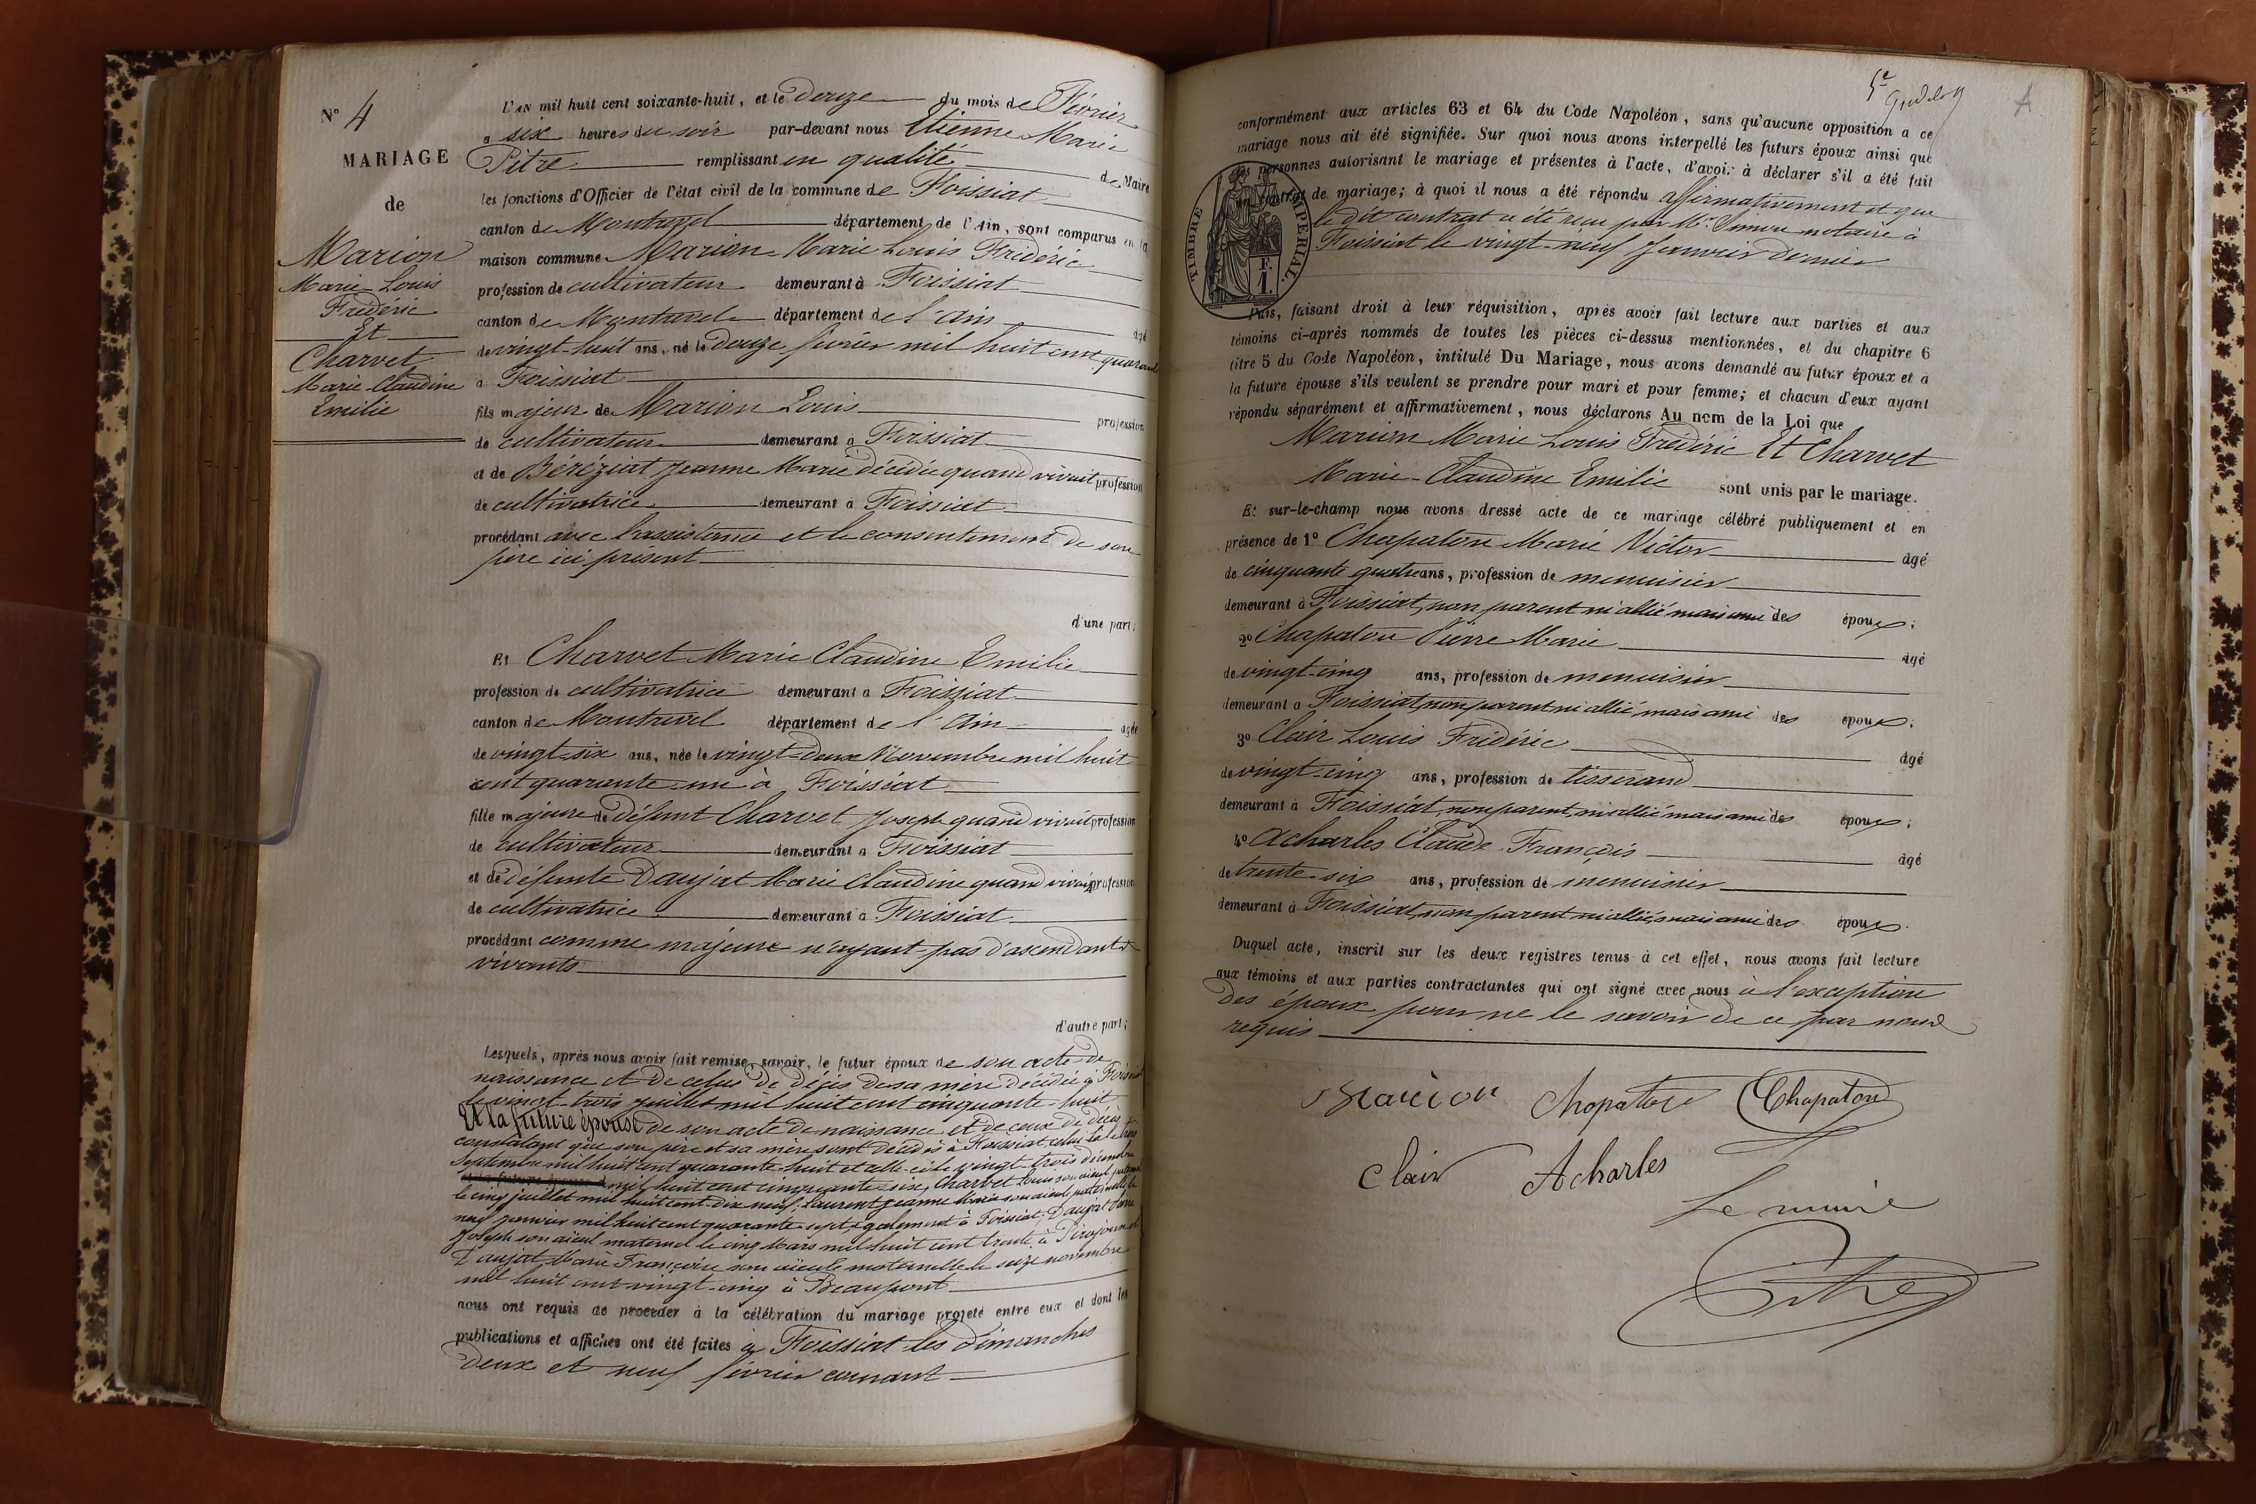 N° 4
MARIAGE
de
Marion
Marie Louis
Frédéric
Et
Charvet
Marie Claudine
Emilie
L'AN mil huit cent soixante-huit, et le douze du mois de Février
a six heures du soir par-devant nous Etienne Marie
Pitre remplissant en qualité de Maire
les fonctions d'Officier de l'état civil de la commune de Foissiat
canton de Montrevel département de l'Ain, sont comparus en la
maison commune Marion Marie Louis Frédéric
profession de cultivateur demeurant à Foissiat
canton de Montrevel département de l'Ain agé
de vingt-huit ans, né le douze février mil huit cent quarante
à Foissiat
fils majeur de Marion Louis profession
de cultivateur demeurant à Foissiat
et de Béréziat Jeanne Marie décédée quand vivait profession
de cultivatrice demeurant à Foissiat
procédant avec l'assistance et le consentement de son
père ici présent
d'une part;
Et Charvet Marie Claudine Emilie
profession de cultivatrice demeurant a Foissiat
canton de Montrevel département de l'Ain agée
de vingt-six ans, née le vingt-deux Novembre mil huit
cent quarante-un à Foissiat
fille majeure de défunt Charvet Joseph quand vivait profession
de cultivateur demeurant a Foissiat
et de défunte Daujat Marie Claudine quand vivait profession
de cultivatrice demeurant à Foissiat
procédant comme majeure n'ayant pas d'ascendants
vivants
d'autre part;
Lesquels, après nous avoir fait remise, savoir, le futur époux de son acte de
naissance et de celui de décès de sa mère décédée à Foissiat
le vingt-trois juillet mil huit cent cinquante-huit
Et la future épouse de son acte de naissance et de ceux de décès
constatant que son père et sa mère sont décédés à Foissiat celui-là le trois
Septembre mil huit cent quarante-huit et celle-ci le vingt-trois décembre
mil huit cent cinquante-six, Charvet Louis son aïeul paternel
le cinq juillet mil huit cent dix-neuf, Laurent Jeanne Marie son aïeule paternelle le
neuf janvier mil huit cent quarante-sept, également à Foissiat, Daujat
Joseph son aïeul maternel le cinq Mars mil huit cent trente à
Daujat Marie Françoise son aïeule maternelle le seize novembre
mil huit cent vingt-cinq à Beaupont
nous ont requis de procéder à la célébration du mariage projeté entre eux et dont les
publications et affiches ont été faites à Foissiat les dimanches
deux et neuf février courant
A
conformément aux articles 63 et 64 du Code Napoléon, sans qu'aucune opposition a ce
mariage nous ait été signifiée. Sur quoi nous avons interpellé les futurs époux ainsi que
les personnes autorisant le mariage et présentes à l'acte, d'avoir à déclarer s'il a été fait
contrat de mariage; à quoi il nous a été répondu affirmativement et que
le dit contrat a été reçu par Me Simon notaire à
Foissiat le vingt-neuf Janvier dernier
TIMBRE IMPÉRIAL.
F.
1.
Puis, faisant droit à leur réquisition, après avoir fait lecture aux parties et aux
témoins ci-après nommés de toutes les pièces ci-dessus mentionnées, et du chapitre 6
titre 5 du Code Napoléon, intitulé Du Mariage, nous avons demandé au futur époux et a
la future épouse s'ils veulent se prendre pour mari et pour femme; et chacun d'eux ayant
répondu séparément et affirmativement, nous déclarons Au nom de la Loi que
Marion Marie Louis Frédéric Et Charvet
Marie-Claudine Emilie sont unis par le mariage.
Et sur-le-champ nous avons dressé acte de ce mariage célébré publiquement et en
présence de 1° Chapaton Marie Victor âgé
de cinquante quatre ans, profession de menuisier
demeurant à Foissiat, non parent ni allié mais ami des époux;
2° Chapaton Pierre Marie âgé
de vingt-cinq ans, profession de menuisier
demeurant a Foissiat, non parent ni allié, mais ami des époux;
3° Clair Louis Frédéric âgé
de vingt-cinq ans, profession de tisserand
demeurant à Foissiat, non parent, ni allié mais ami des époux;
4° Acharles Claude François âgé
de trente-six ans, profession de menuisier
demeurant à Foissiat, non parent ni allié, mais ami des époux.
Duquel acte, inscrit sur les deux registres tenus à cet effet, nous avons fait lecture
aux témoins et aux parties contractantes qui ont signé avec nous à l'exception
des époux pour ne le savoir de ce par nous
requis
Marion Chapaton Chapaton
Clair Acharles
Le maire
Pitre